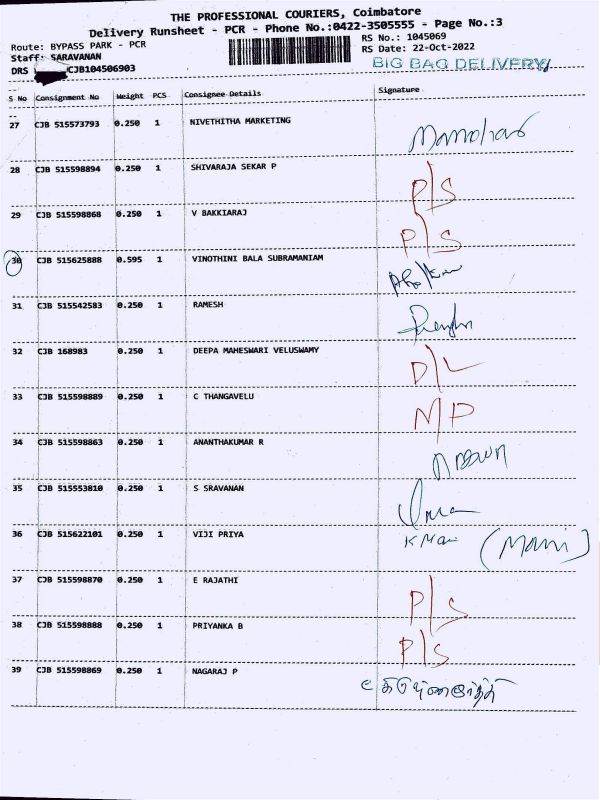 THE PROFESSIONAL COURIERS, Coimbatore
Delivery Runsheet - PCR - Phone No.:0422-3505555 - Page No.:3
Route: BYPASS PARK - PCR
RS No.: 1045069
Staff: SARAVANAN
RS Date: 22-Oct-2022
DRS CJB104506903
BIG BAG DELIVERY
S No Consignment No Weight PCS Consignee Details Signature
27 CJB 515573793 0.250 1 NIVETHITHA MARKETING Manohar
28 CJB 515598894 0.250 1 SHIVARAJA SEKAR P P/S
29 CJB 515598868 0.250 1 V BAKKIARAJ P/S
30 CJB 515625888 0.595 1 VINOTHINI BALA SUBRAMANIAM
31 CJB 515542583 0.250 1 RAMESH
32 CJB 168983 0.250 1 DEEPA MAHESWARI VELUSWAMY D/L
33 CJB 515598889 0.250 1 C THANGAVELU MP
34 CJB 515598863 0.250 1 ANANTHAKUMAR R
35 CJB 515553810 0.250 1 S SRAVANAN
36 CJB 515622101 0.250 1 VIJI PRIYA K Man (Mani)
37 CJB 515598870 0.250 1 E RAJATHI P/S
38 CJB 515598888 0.250 1 PRIYANKA B P/S
39 CJB 515598869 0.250 1 NAGARAJ P